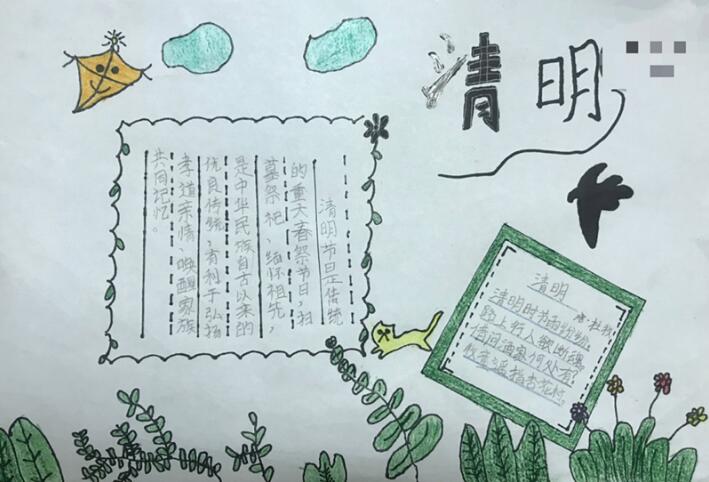 清明
清明节是传统
的重大春祭节日，扫
墓祭祀、缅怀祖先，
是中华民族自古以来的
优良传统，有利于弘扬
孝道亲情、唤醒家族
共同记忆。
清明
—杜牧
清明时节雨纷纷，
路上行人欲断魂。
借问酒家何处有？
牧童遥指杏花村。